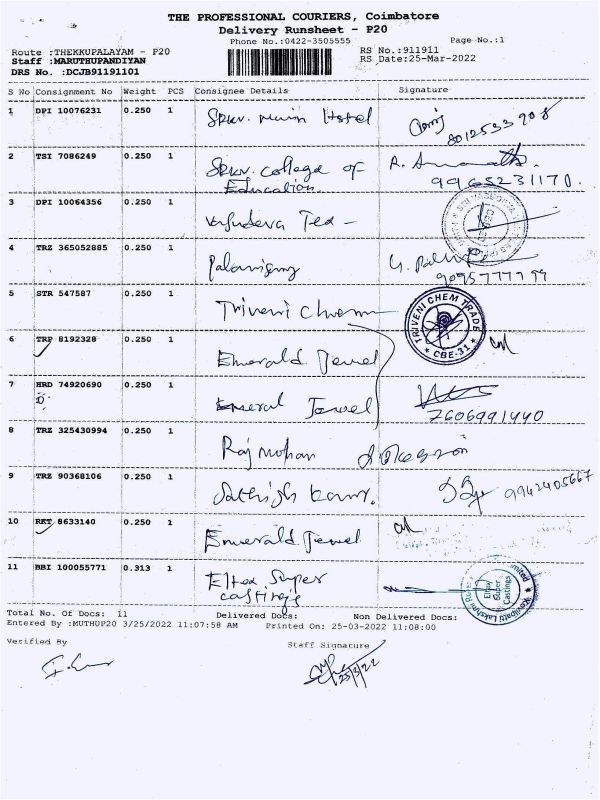 THE PROFESSIONAL COURIERS, Coimbatore
Delivery Runsheet - P20
Phone No.:0422-3505555
Page No.:1
Route :THEKKUPALAYAM - P20
RS No.:911911
Staff :MARUTHUPANDIYAN
RS Date:25-Mar-2022
DRS No. :DCJB91191101
S No Consignment No Weight PCS Consignee Details Signature
1 DPI 10076231 0.250 1 Hostel
8012533908
2 TSI 7086249 0.250 1 college of
Education.
9965231170.
3 DPI 10064356 0.250 1 Vasudeva Tex -
4 TRZ 365052885 0.250 1 Palanisamy
9095777799
5 STR 547587 0.250 1 Triveni Chem
TRIVENI CHEM TRADE
CBE-31
6 TRP 8192328 0.250 1 Emerald Jewel
7 HRD 74920690 0.250 1 Emeral Jewel
7606991440
8 TRZ 325430994 0.250 1 Raj mohan
9 TRZ 90368106 0.250 1 Sathish Kumr. 9942405667
10 RKT 8633140 0.250 1 Emerald Jewel
11 BBI 100055771 0.313 1 Eltex Super
castings
Super
Castings
Total No. Of Docs: 11 Delivered Docs: Non Delivered Docs:
Entered By :MUTHUP20 3/25/2022 11:07:58 AM Printed On: 25-03-2022 11:08:00
Verified By
Staff Signature
25/3/22